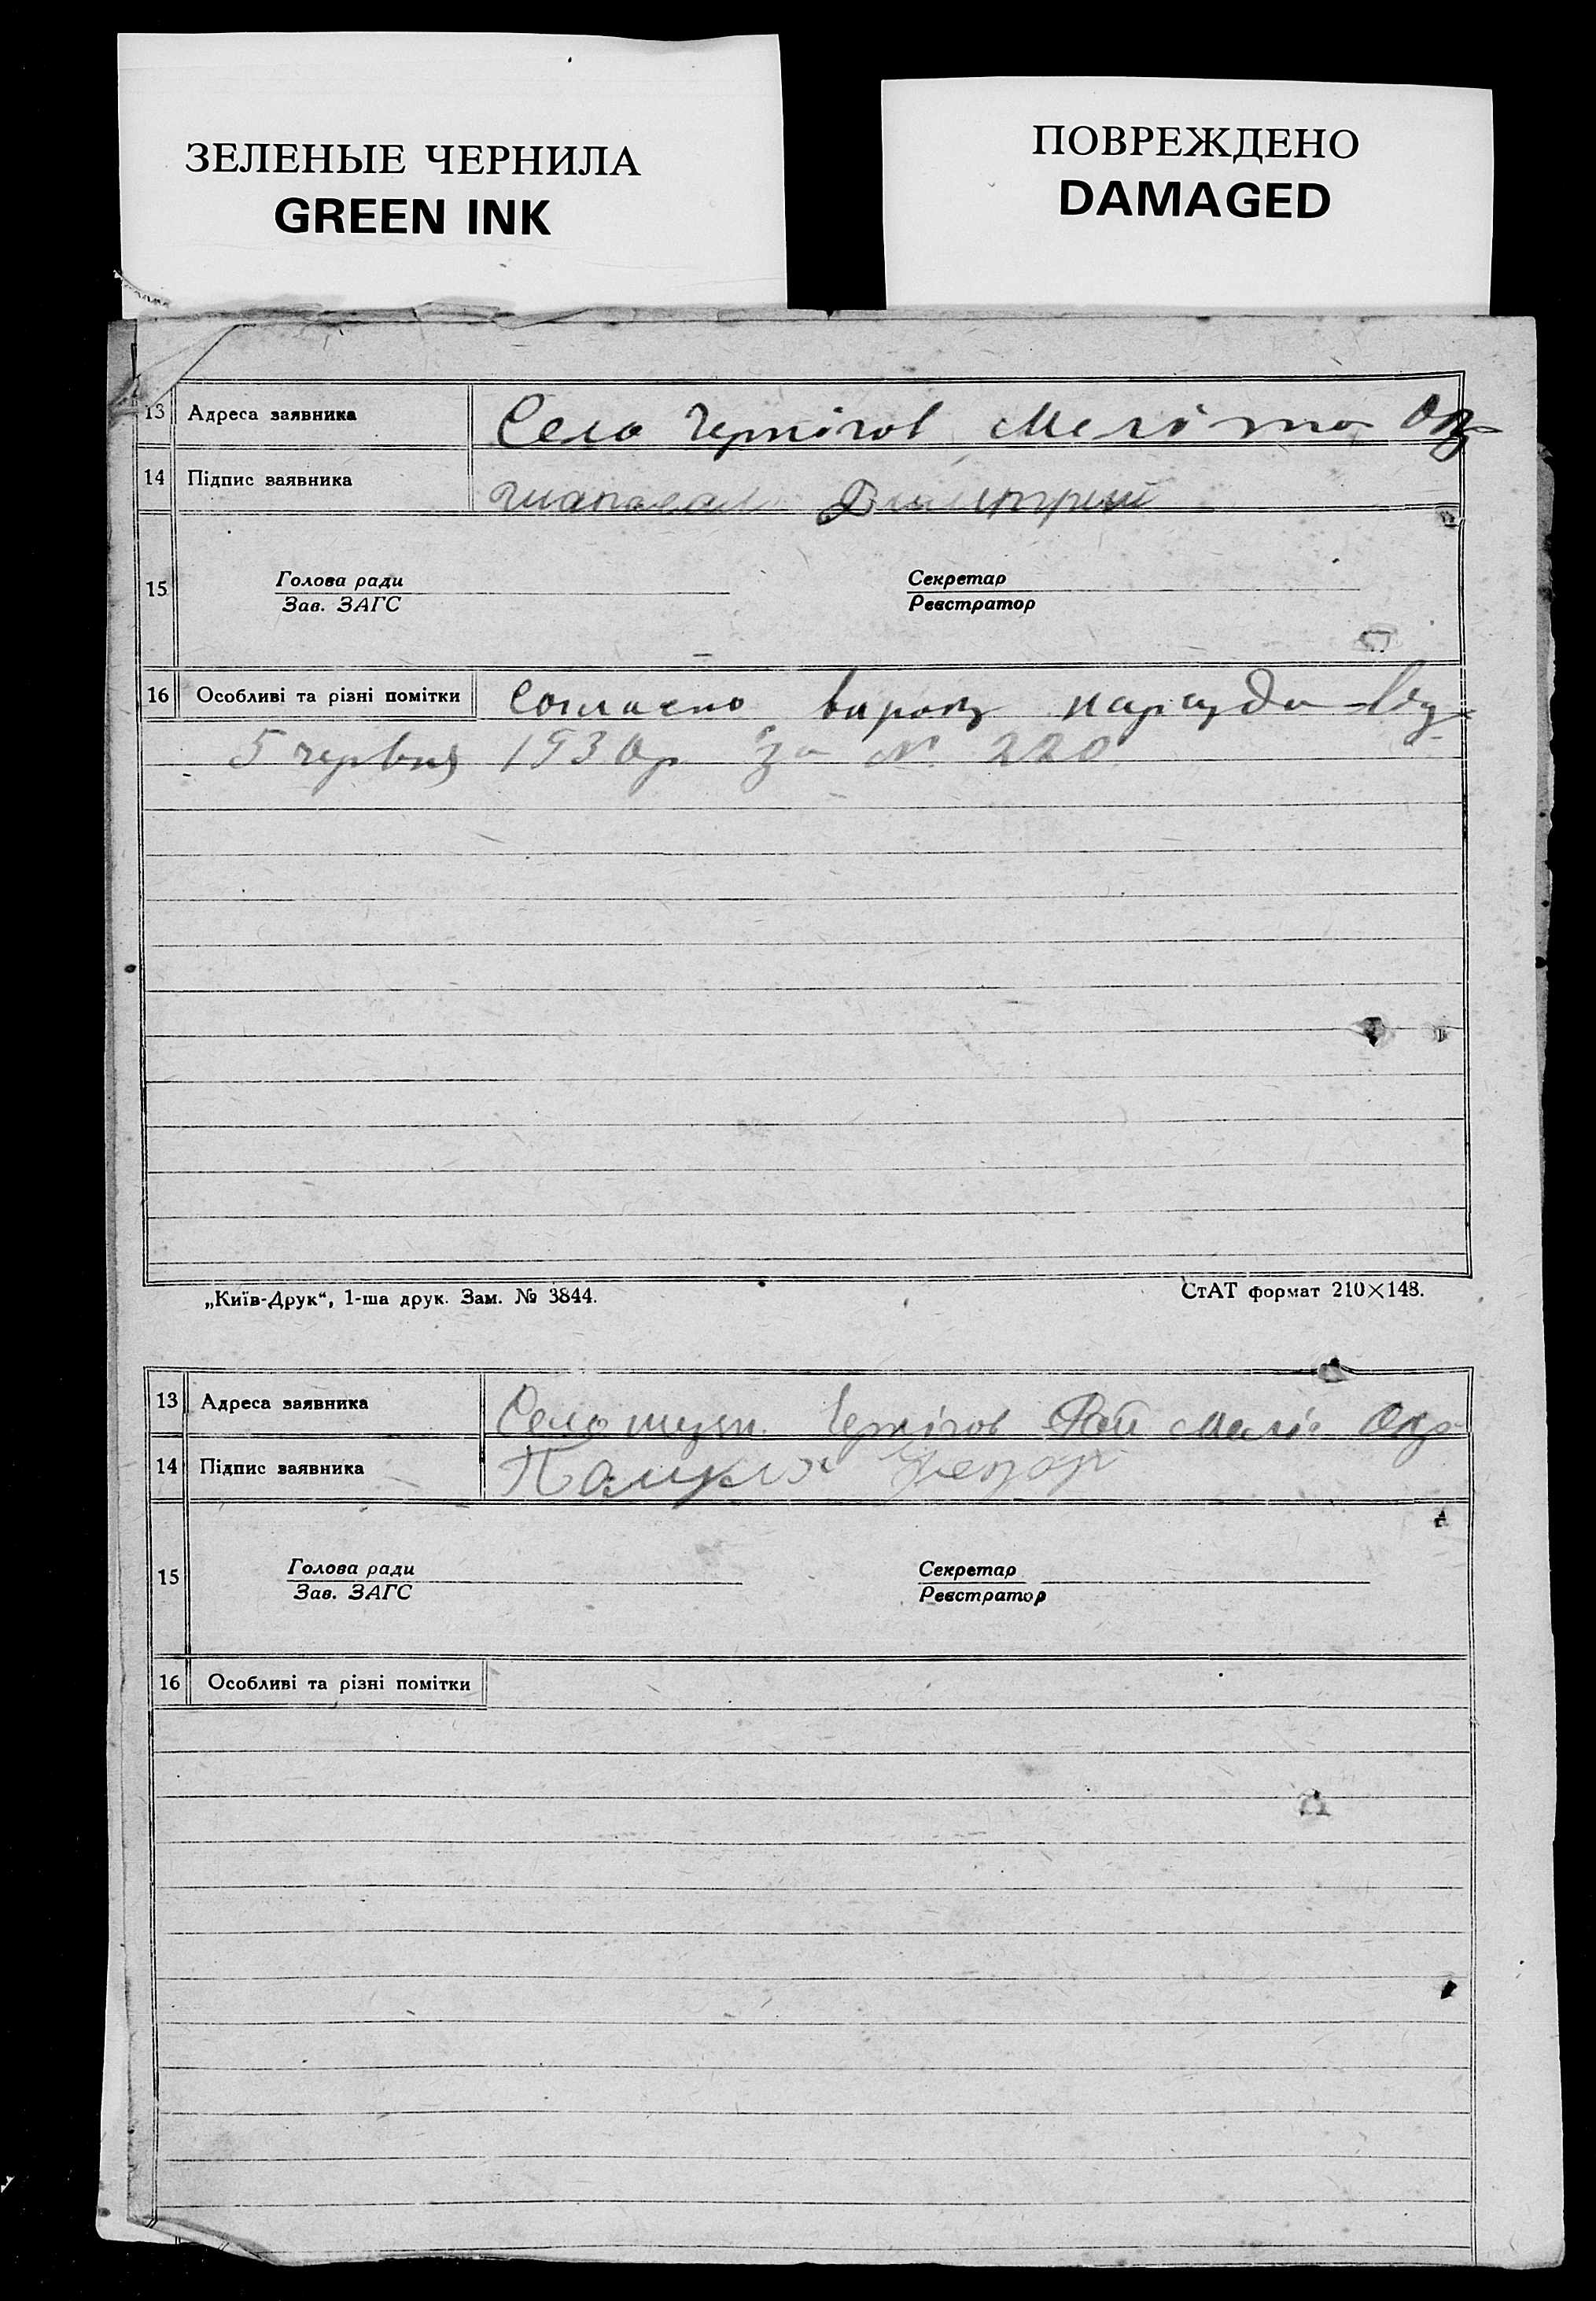 ЗЕЛЕНЫЕ ЧЕРНИЛА
GREEN INK
ПОВРЕЖДЕНО
DAMAGED
13 Адреса заявника Село Чернігов Меліто Окр
14 Підпис заявника Дмитрий
15 Голова ради Секретар
Зав. ЗАГС Реєстратор
16 Особливі та різні помітки Согласно вироку нарсуда від
5 червня 1930р за № 220
„Київ-Друк“, 1-ша друк. Зам. № 3844.
СтАТ формат 210×148.
13 Адреса заявника Село Чернігов Рай Меліт Окр
14 Підпис заявника
15 Голова ради Секретар
Зав. ЗАГС Реєстратор
16 Особливі та різні помітки